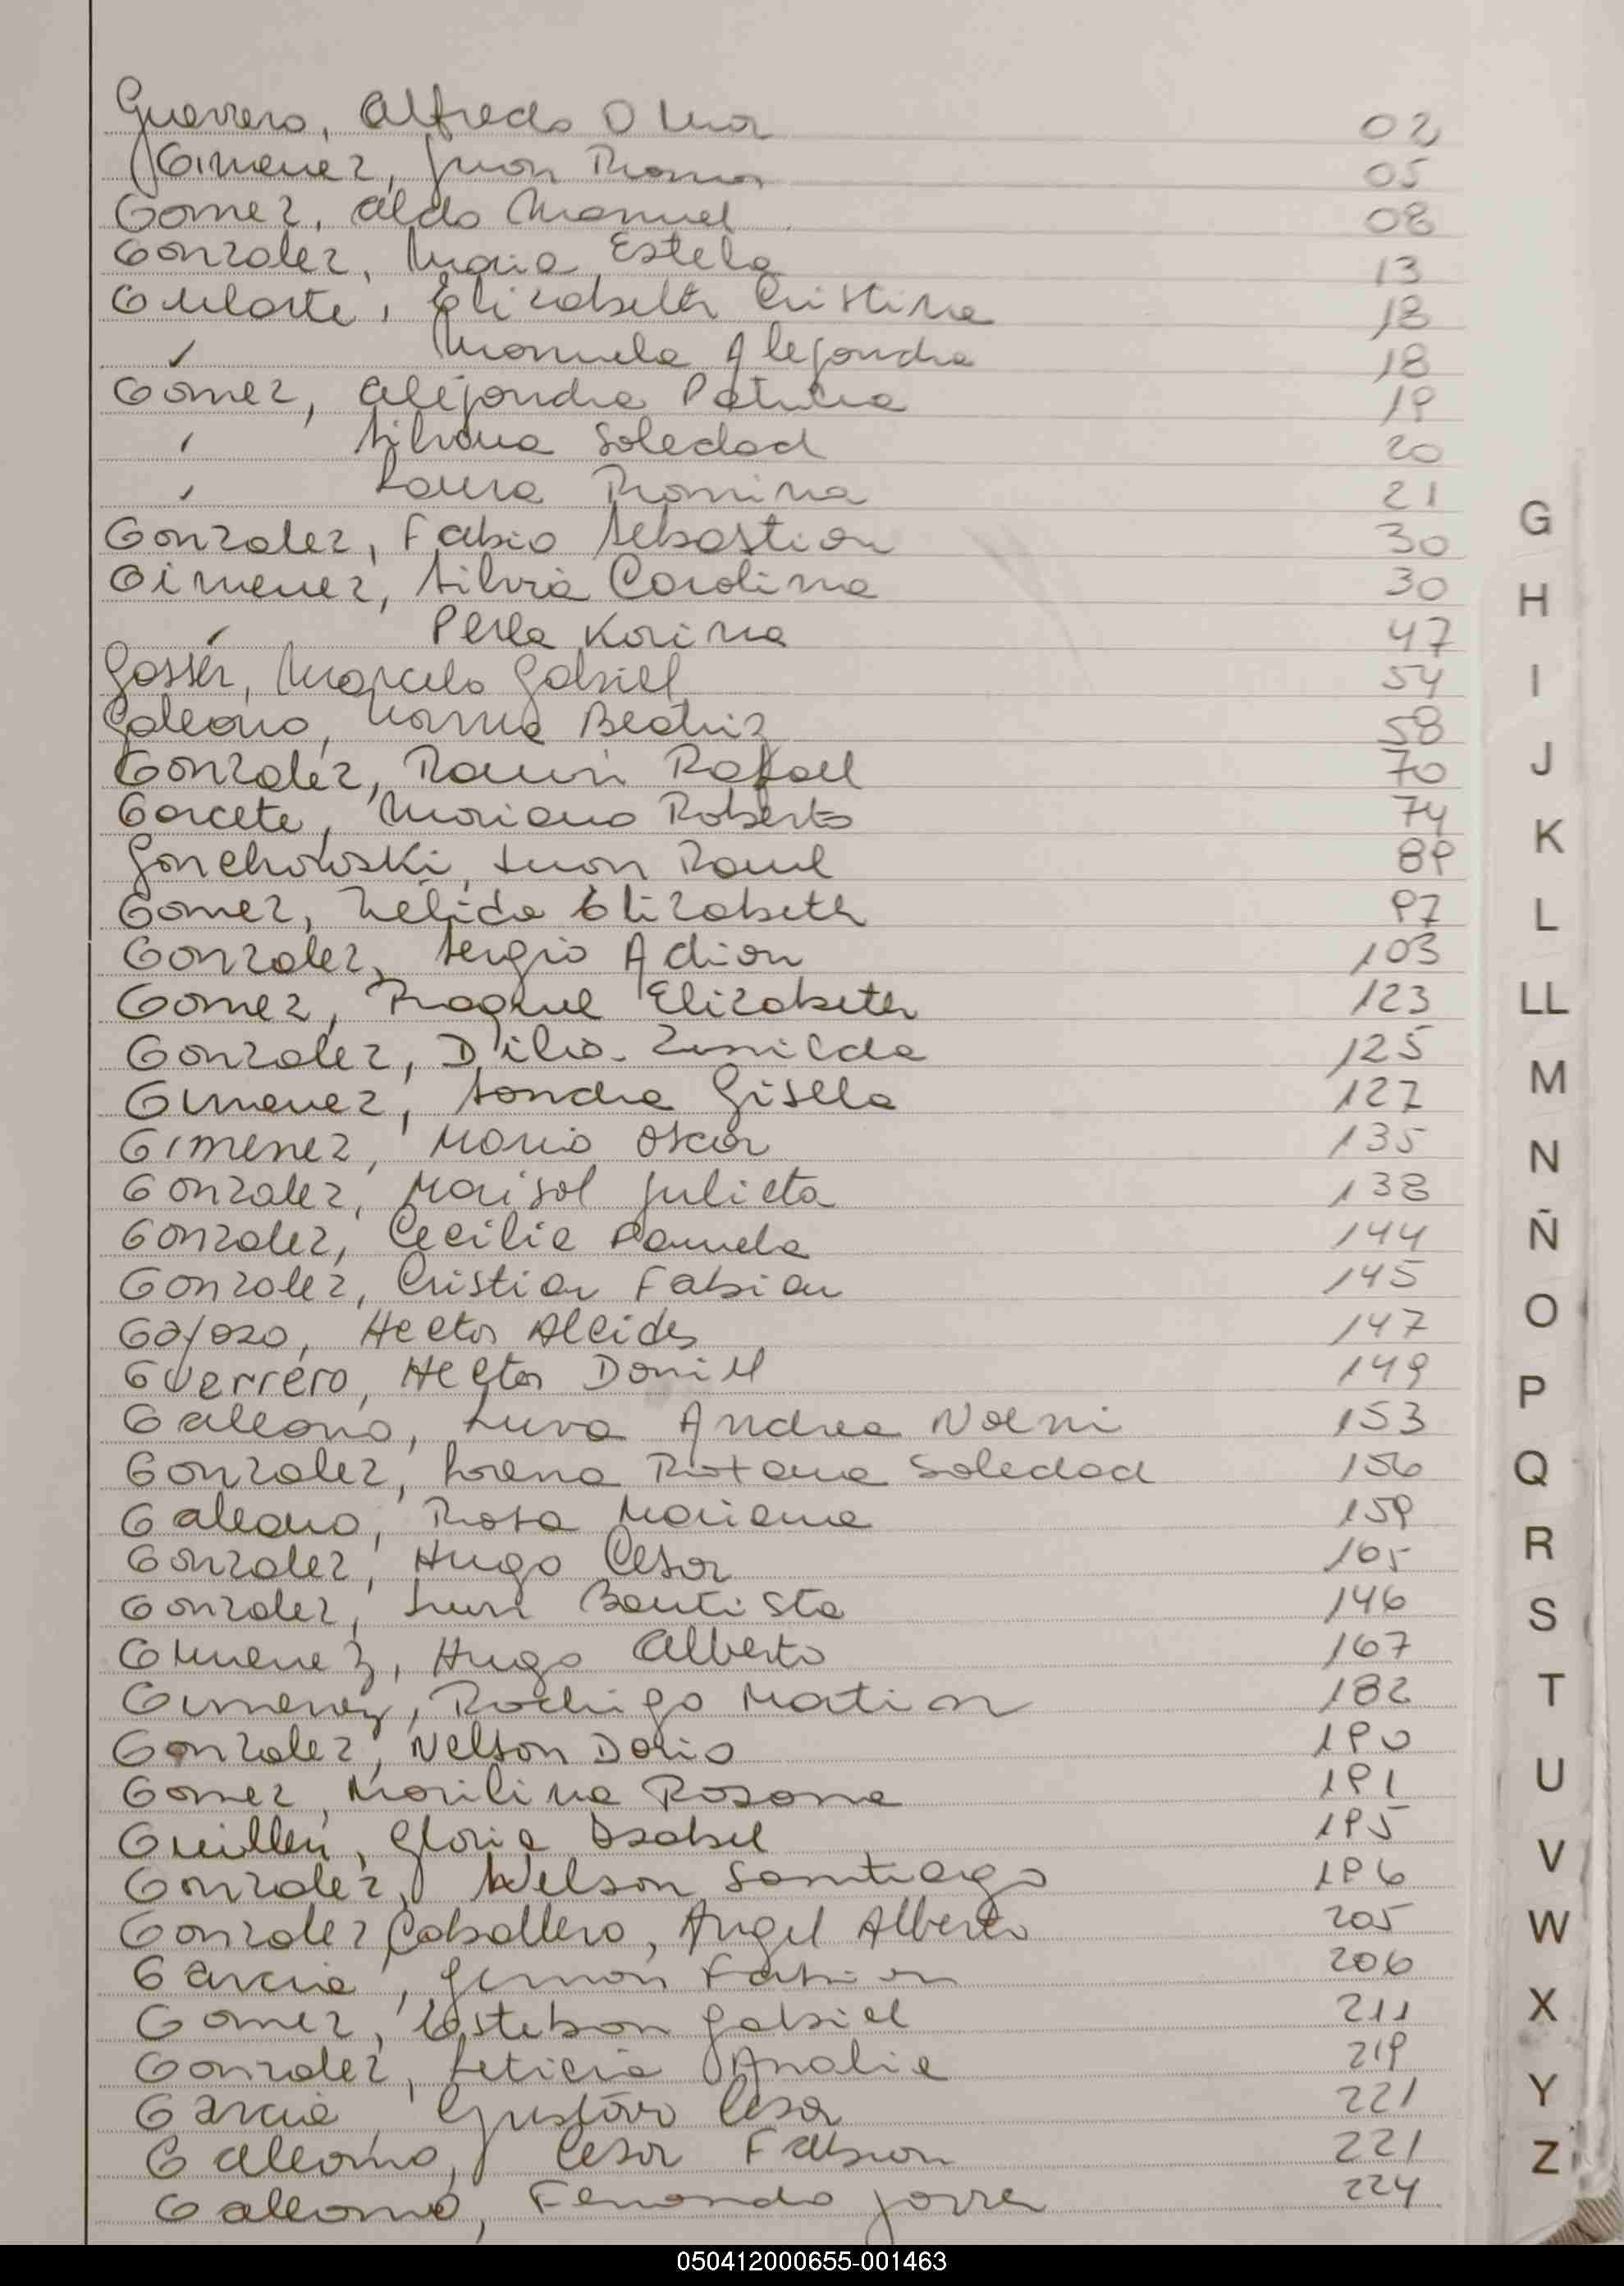 Guerrero, Alfredo Omar 02
Gimenez, Juan Ramon 05
Gomez, Aldo Manuel 08
Gonzalez, Maria Estela 13
Gularte, Elizabeth Cristina 18
" Manuela Alejandra 18
Gómez, Alejandra Patricia 19
" Silvana Soledad 20
" Laura Romina 21
Gonzalez, Fabio Sebastian 30
Gimenez, Silvia Carolina 30
" Perla Karina 47
Gasser, Marcelo Gabriel 54
Galeano, Norma Beatriz 58
González, Ramon Rafael 70
Garcete, Mariano Roberto 74
Gonchoroski, Juan Raul 89
Gomez, Nelida Elizabeth 97
Gonzalez, Sergio Adrian 103
Gomez, Raquel Elizabeth 123
Gonzalez, Dilia Zunilda 125
Gimenez, Sandra Gisella 127
Gimenez, Mario Oscar 135
Gonzalez, Marisol Julieta 138
Gonzalez, Cecilia Pamela 144
Gonzalez, Cristian Fabian 145
Gayoso, Hector Alcides 147
Guerrero, Hector Daniel 149
Galeano, Andrea Noemi 153
Gonzalez, Lorena Roxana Soledad 156
Galeano, Rosa Mariana 159
Gonzalez, Hugo Cesar 165
Gonzalez, Juan Bautista 146
Gimenez, Hugo Alberto 167
Gimenez, Rodrigo Matias 182
Gonzalez, Nelson Dario 190
Gomez, Marilina Rosana 191
Guillen, Gloria Isabel 195
Gonzalez, Nelson Santiago 196
Gonzalez Caballero, Angel Alberto 205
Garcia, German Fabian 206
Gomez, Esteban Gabriel 211
Gonzalez, Leticia Analia 219
Garcia, Gustavo Cesar 221
Galeano, Cesar Fabian 221
Galeano, Fernando Javier 224
G
H
I
J
K
L
LL
M
N
Ñ
O
P
Q
R
S
T
U
V
W
X
Y
Z
050412000655-001463